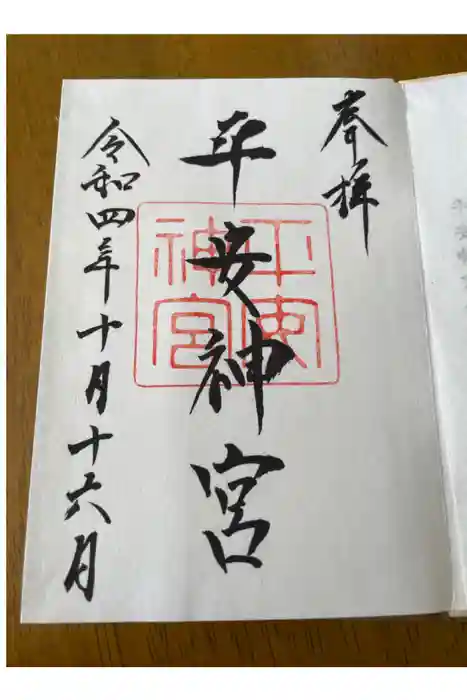 奉拝
平安神宮
平安神宮
令和四年十月十六月